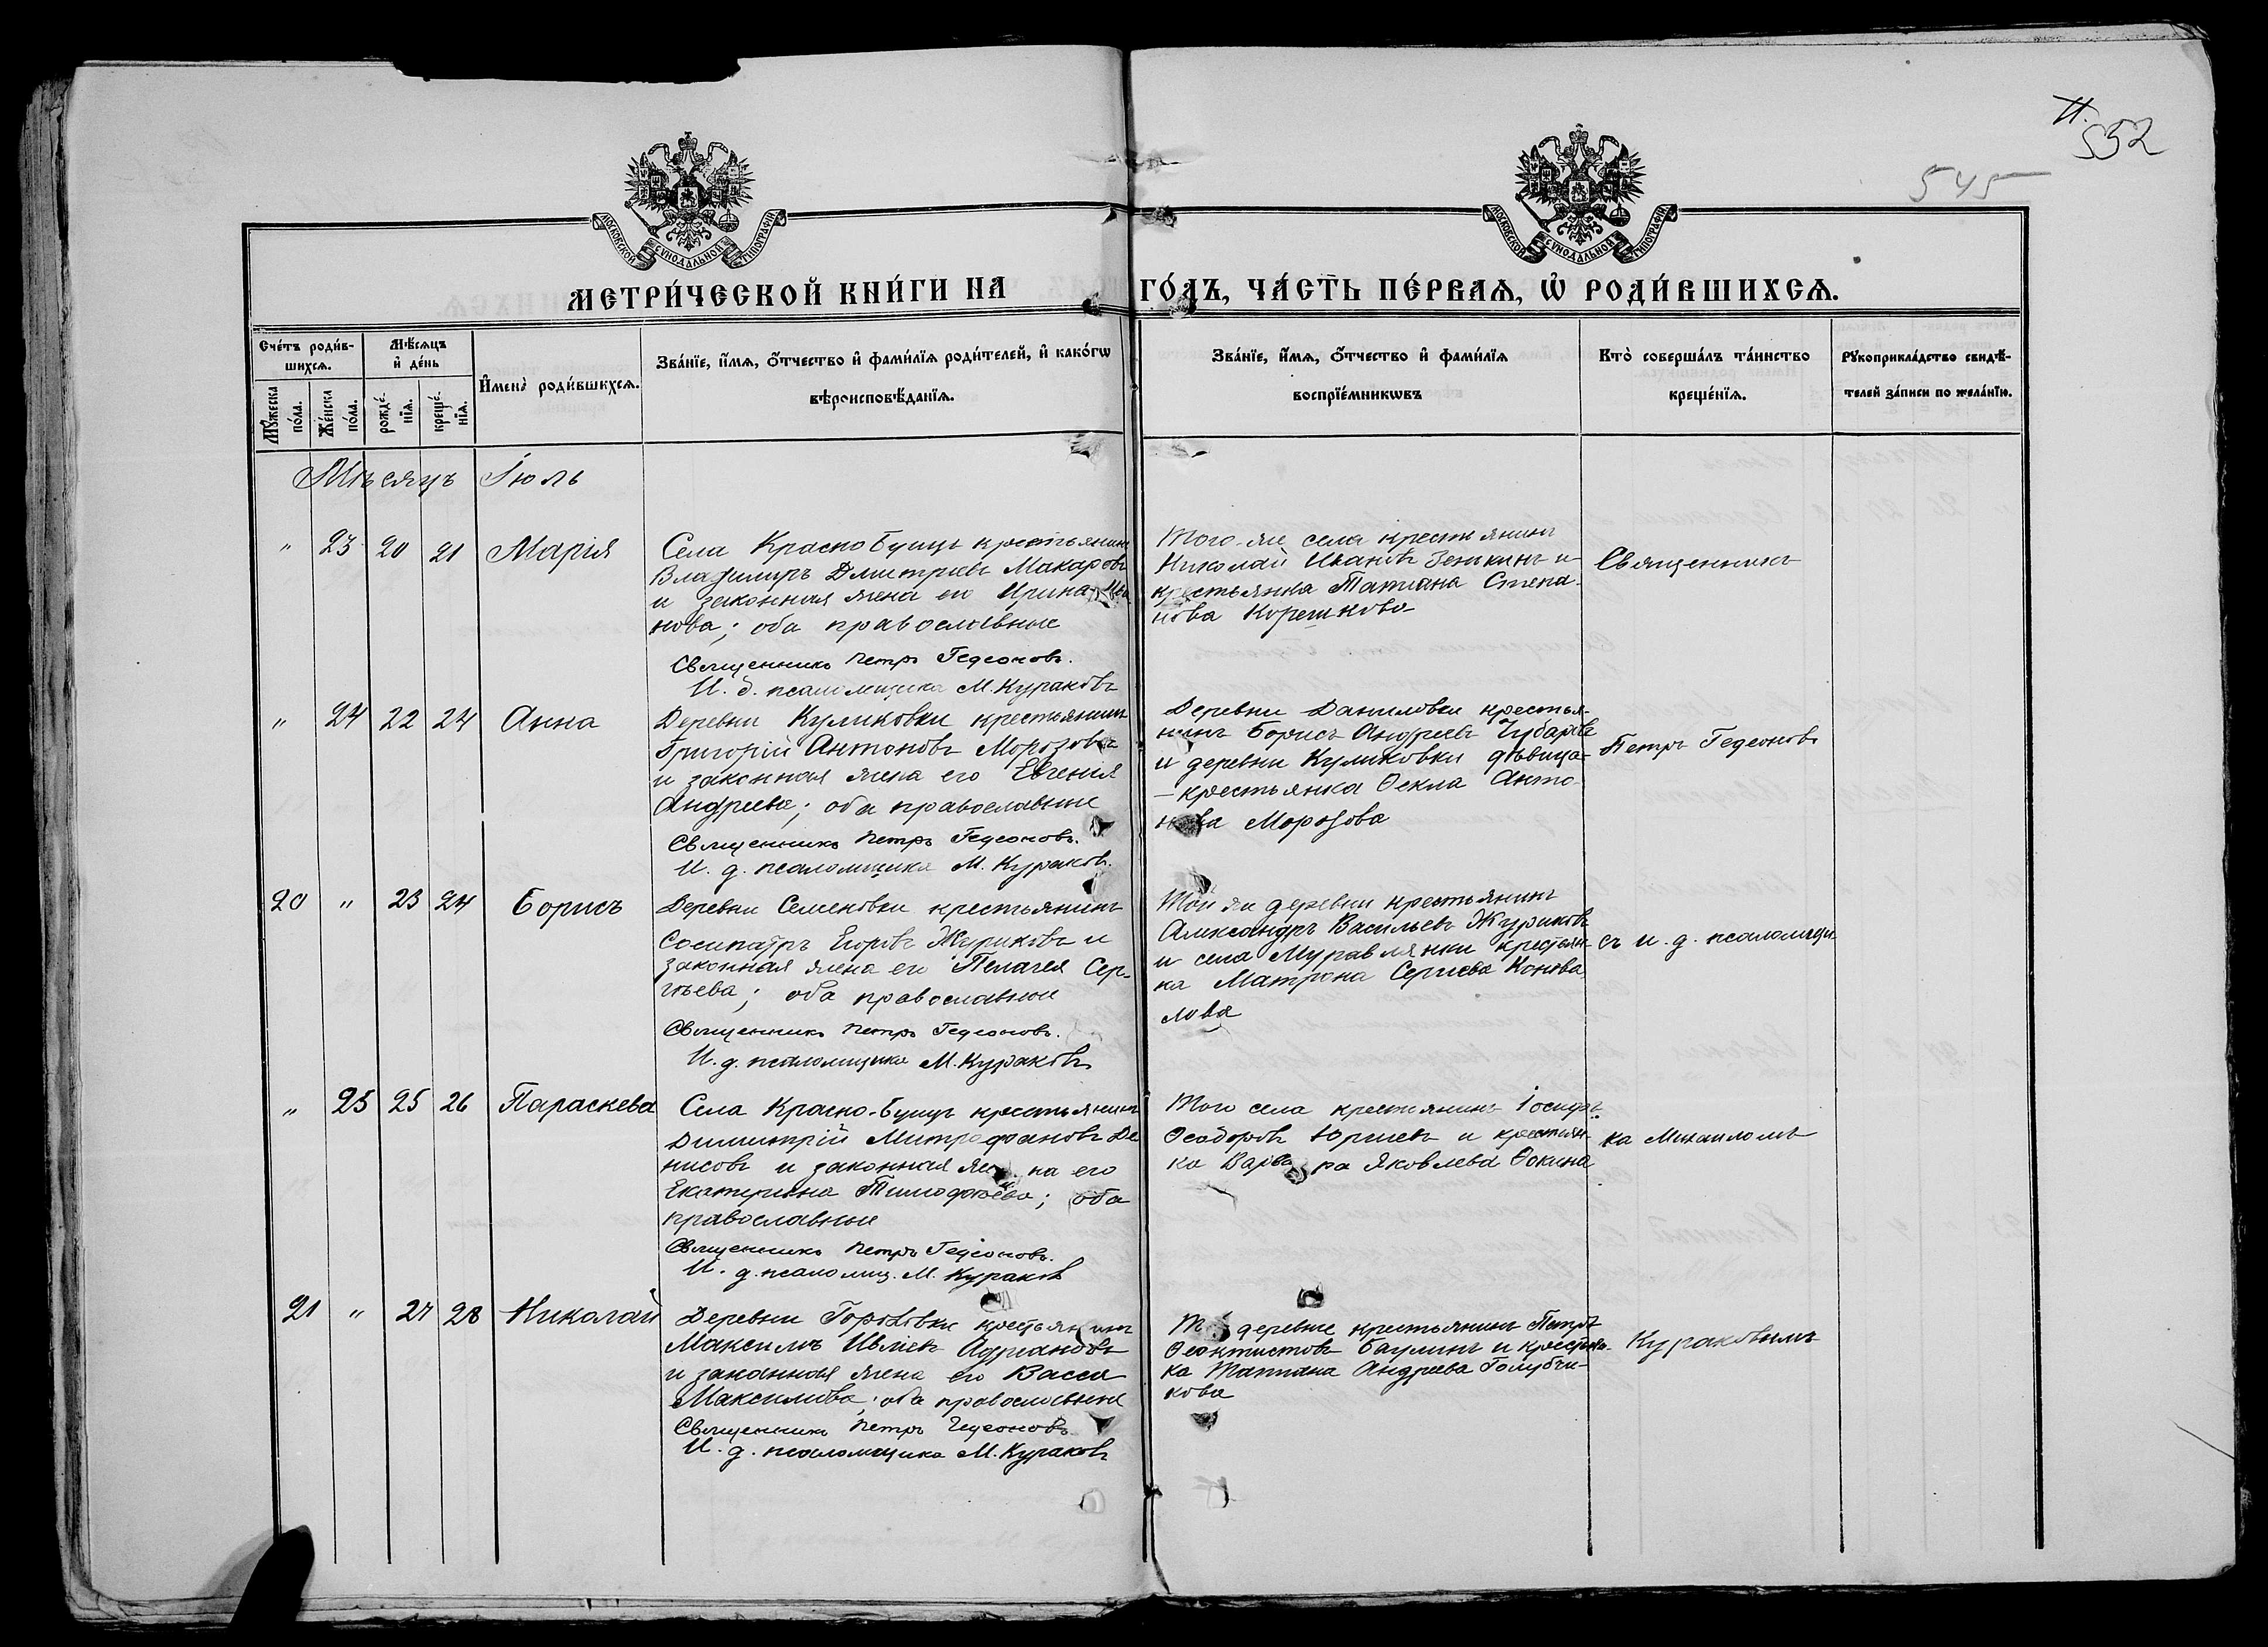 11.
552
545
МОСКОВСКОЙ СУНОДАЛЬНОЙ ТИПОГРАФІИ
МОСКОВСКОЙ СУНОДАЛЬНОЙ ТИПОГРАФІИ
МЕТРИ́ЧЕСКОЙ КНИ́ГИ НА ГО́ДЪ, ЧА́СТЬ ПЕ́РВАѦ, Ѡ҆ РОДИ́ВШИХСѦ.
Сче́тъ роди́вшихсѧ.
Мꙋ́жеска по́ла.
Же́нска по́ла.
Мѣ́сѧцъ и҆ де́нь
рожде́нїѧ.
креще́нїѧ.
И҆мена̀ роди́вшихсѧ.
Зва́нїе, и҆́мѧ, ѻ҆́тчество и҆ фами́лїѧ роди́телей, и҆ како́гѡ
вѣроисповѣ́данїѧ.
Зва́нїе, и҆́мѧ, ѻ҆́тчество и҆ фами́лїѧ
воспрїе́мникѡвъ
Кто̀ соверша́лъ та́инство
креще́нїѧ.
Рꙋкоприкла́дство свидѣ́-
телей за́писи по жела́нїю.
Мѣсяцъ Іюль
" 23 20 21 Марія
Села Красно Буицъ крестьянинъ
Владимиръ Дмитріевъ Макаровъ
и законная жена его Ирина
нова; оба православные
Священникъ Петръ Гедеоновъ.
И. д. псаломщика М. Кураковъ
Того-же села крестьянинъ
Николай Ивановъ Зенькинъ и
крестьянка Татіана Степа-
нова Корешкова
Священникъ
" 24 22 24 Анна
Деревни Куликовки крестьянинъ
Григорій Антоновъ Морозовъ
и законная жена его Евгенія
Андреева; оба православные
Священникъ Петръ Гедеоновъ.
И. д. псаломщика М. Кураковъ.
Деревни Даниловки крестья-
нинъ Борисъ Андреевъ Чубаровъ
и деревни Куликовки дѣвица-
-крестьянка Ѳекла Анто-
нова Морозова
Петръ Гедеоновъ
20 " 23 24 Борисъ
Деревни Семеновки крестьянинъ
Сосипатръ Егоровъ Журиковъ и
законная жена его Пелагея Сер-
гѣева; оба православные
Священникъ Петръ Гедеоновъ.
И. д. псаломщика М. Кураковъ
Той же деревни крестьянинъ
Александръ Васильевъ Журиковъ
и села Муравлянки крестьян-
ка Матрона Сергіева Конова
лова
съ и. д. псаломщи
" 25 25 26 Параскева
Села Красно-Буицъ крестьянинъ
Димитрій Митрофановъ Де
нисовъ и законная жена его
Екатерина Тимофѣева; оба
православные
Священникъ Петръ Гедеоновъ.
И. д. псаломщ. М. Кураковъ
Того села крестьянинъ Іосифъ
Ѳеодоровъ Юргіевъ и крестьян-
ка Варвара Яковлева Ѳокина
ка Михаиломъ
21 " 27 28 Николай
Деревни крестьянинъ
Максимъ Ивліевъ Адріановъ
и законная жена его Васса
Максимова; оба православные
Священникъ Петръ Гедеоновъ
И. д. псаломщика М. Кураковъ
деревне крестьянинъ Петръ
Ѳеоктистовъ Баулинъ и крестьян-
ка Татіана Андреева Голубчи-
кова
Кураковымъ